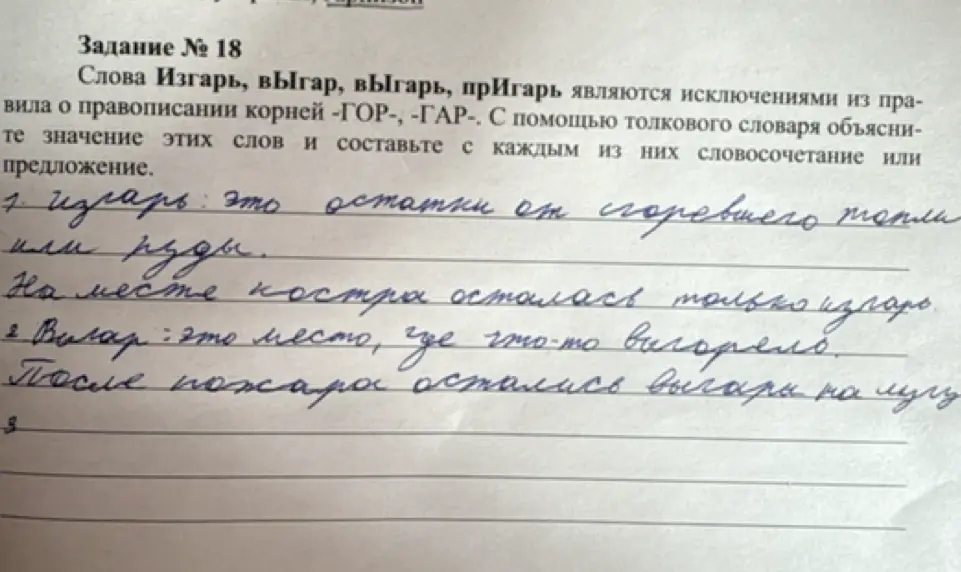 гарнизон
Задание № 18
Слова Изгарь, вЫгар, вЫгарь, прИгарь являются исключениями из пра-
вила о правописании корней -ГОР-, -ГАР-. С помощью толкового словаря объясни-
те значение этих слов и составьте с каждым из них словосочетание или
предложение.
1. Изгарь: это остатки от сгоревшего топли
или руды.
На месте костра осталась только изгарь.
2 Выгар: это место, где что-то выгорело.
После пожара остались выгары на лугу
3